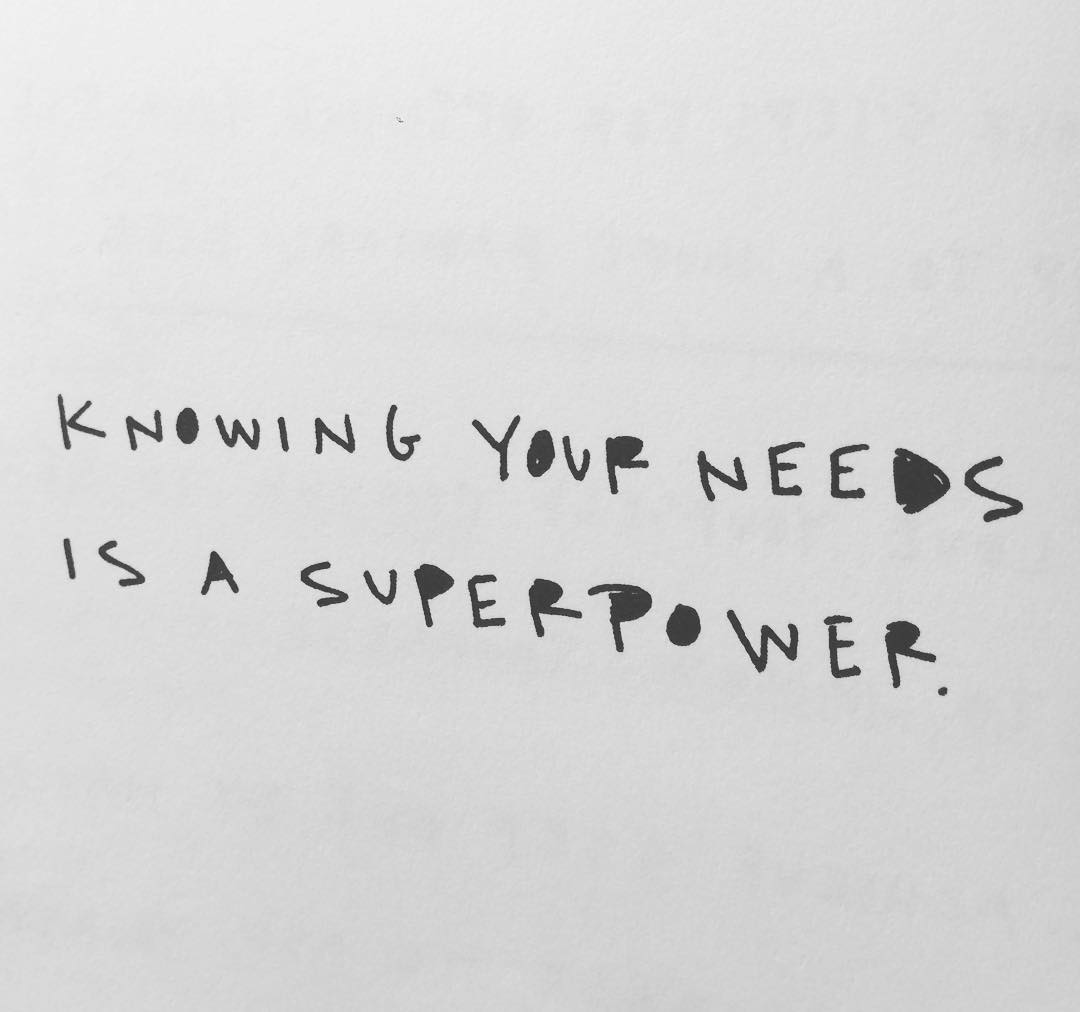 KNOWING YOUR NEEDS
IS A SUPERPOWER.